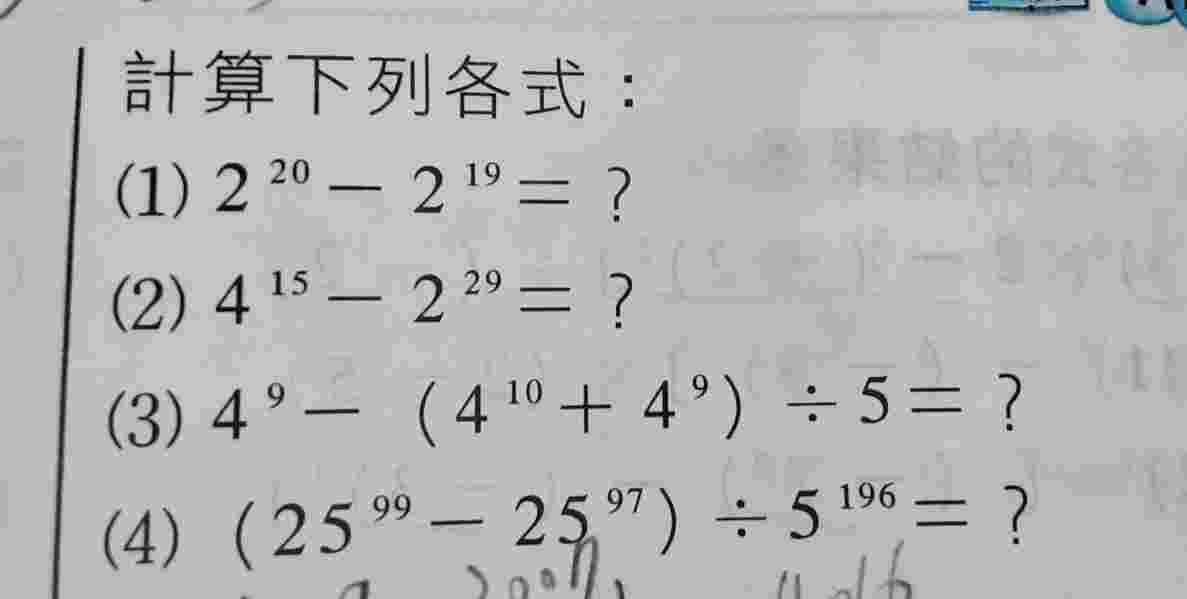 計算下列各式：
(1) 2²⁰ − 2¹⁹ = ?
(2) 4¹⁵ − 2²⁹ = ?
(3) 4⁹ − (4¹⁰ + 4⁹) ÷ 5 = ?
(4) (25⁹⁹ − 25⁹⁷) ÷ 5¹⁹⁶ = ?